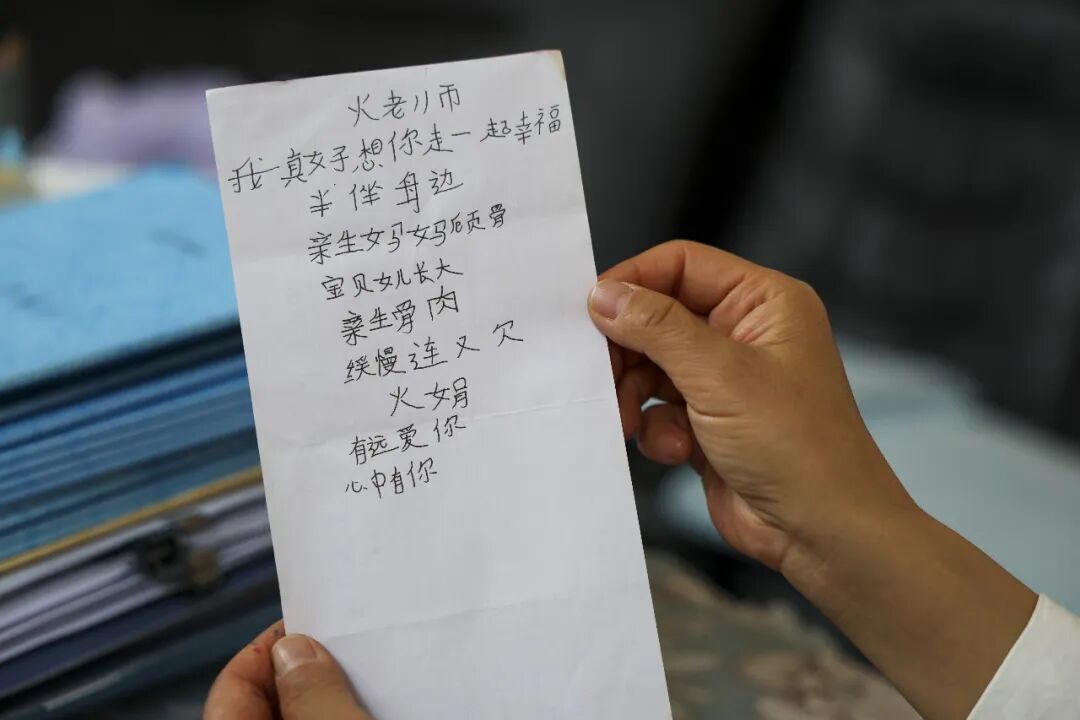 火老师
我真好想你走一起幸福
半伴身边
亲生妈妈颀骨
宝贝女儿长大
亲生骨肉
缓慢连又欠
火娟
有远爱你
心中有你